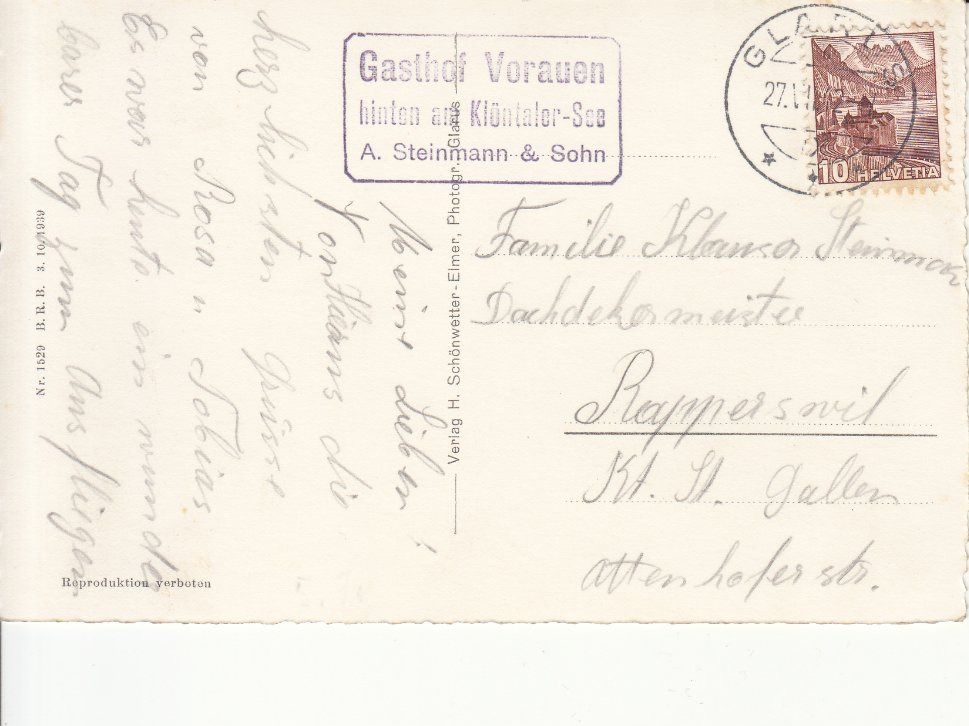 Gasthof Vorauen
hinten am Klöntaler-See
A. Steinmann & Sohn
GLARUS
27.VI
10 HELVETIA
Meine Lieben!
Von Hieraus die
herzlichsten Grüsse
von Rosa u Tobias
Es war heute ein wunder
barer Tag zum Ausfliegen
Familie Steinmann
Dachdekermeister
Rapperswil
Kt. St. Gallen
Attenhoferstr.
Verlag H. Schönwetter-Elmer, Photogr. Glarus
Nr. 1529 B. R. B. 3. 10. 1939
Reproduktion verboten